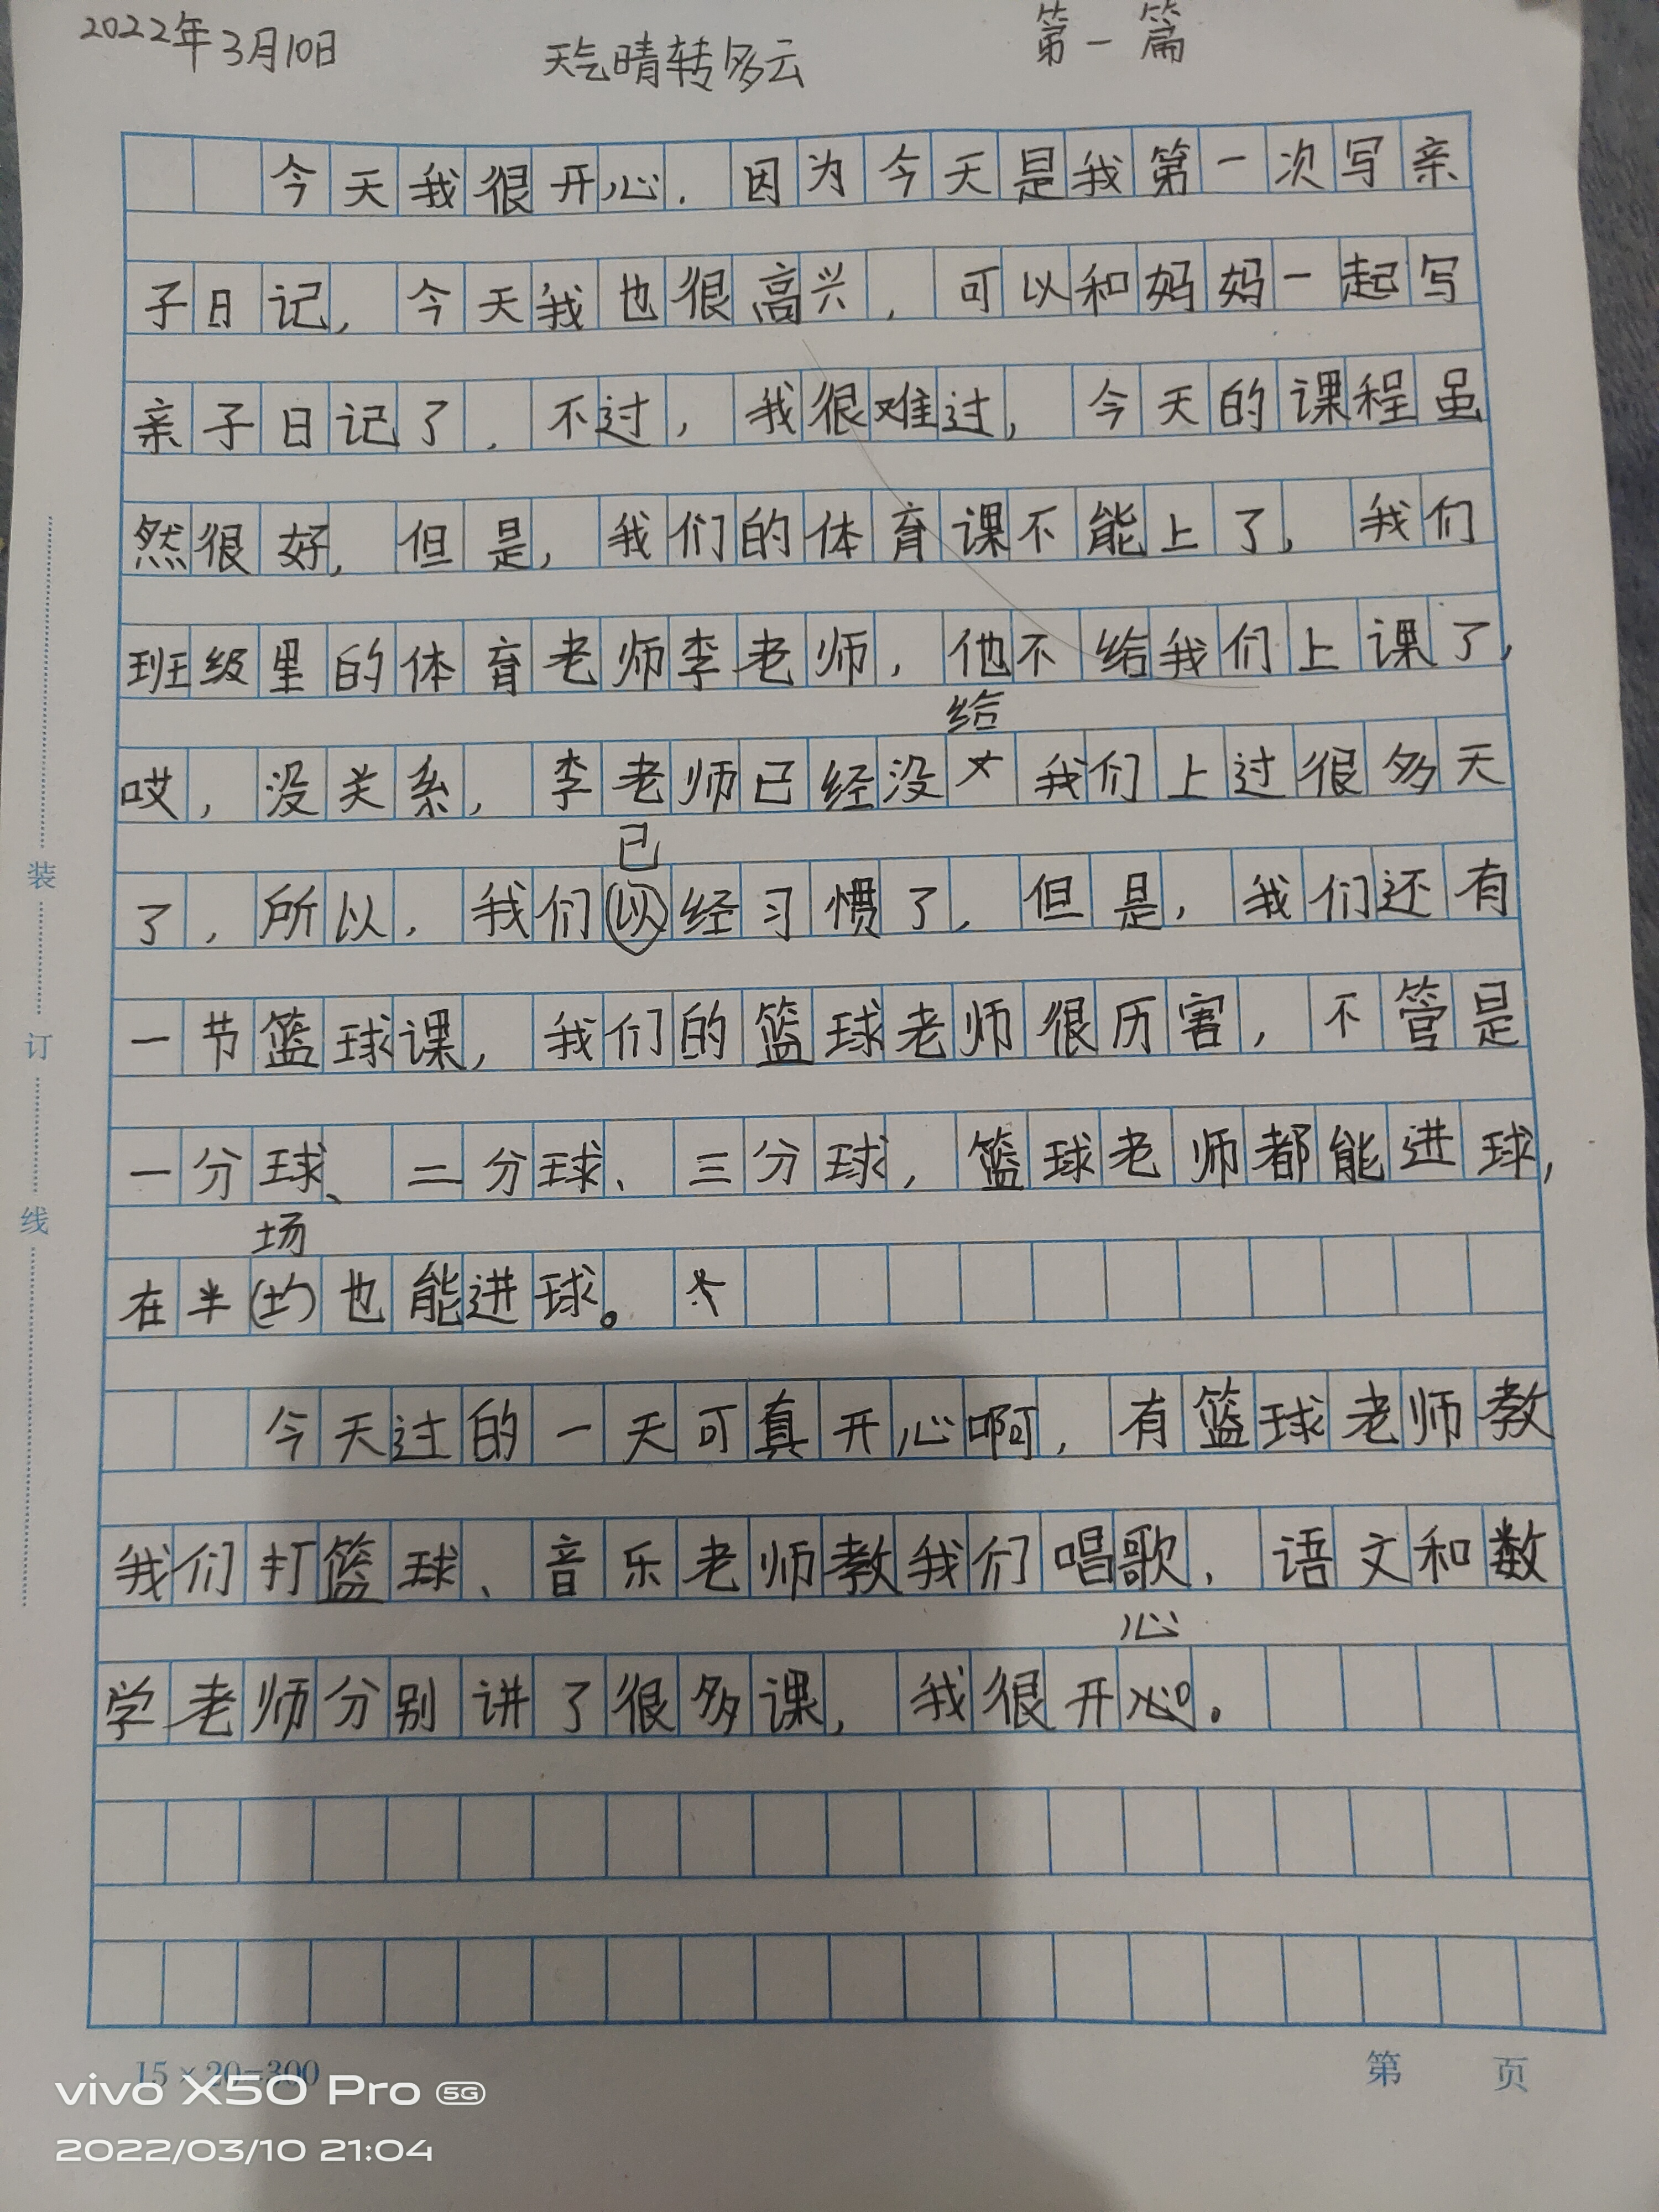 2022年3月10日 天气晴转多云 第一篇
今天我很开心.因为今天是我第一次写亲
子日记,今天我也很高兴,可以和妈妈一起写
亲子日记了.不过,我很难过,今天的课程虽
然很好,但是,我们的体育课不能上了,我们
班级里的体育老师李老师,他不给我们上课了,
给
哎,没关系,李老师已经没我们上过很多天
已
了,所以,我们以经习惯了,但是,我们还有
一节篮球课,我们的篮球老师很历害,不管是
一分球、二分球、三分球,篮球老师都能进球,
场
在半也能进球。
今天过的一天可真开心啊,有篮球老师教
我们打篮球、音乐老师教我们唱歌,语文和数
心
学老师分别讲了很多课,我很开心。
装
订
线
15×20=300
第 页
vivo X50 Pro 5G
2022/03/10 21:04